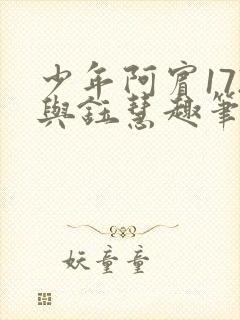 少年阿賓17
與鈺慧趣筆
妖童童